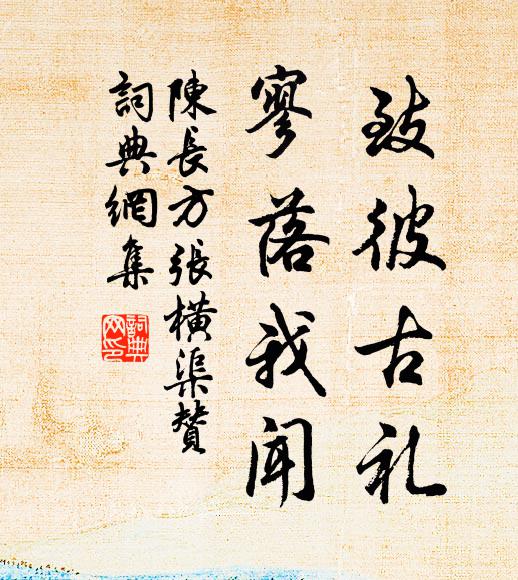 致彼古礼
寥落我闻
陳長方張橫渠贊
詞典網集
詞典
网印